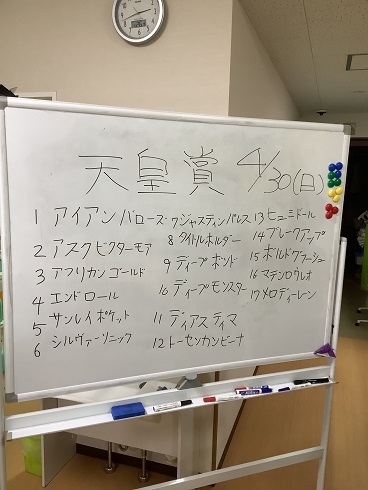 天皇賞 4/30(日)
1 アイアンバローズ
2 アスクビクターモア
3 アフリカンゴールド
4 エンドロール
5 サンレイポケット
6 シルヴァーソニック
7 ジャスティンパレス
8 タイトルホルダー
9 ディープボンド
10 ディープモンスター
11 ディアスティマ
12 トーセンカンビーナ
13 ヒュミドール
14 ブレークアップ
15 ボルドグフーシュ
16 マテンロウレオ
17 メロディーレーン